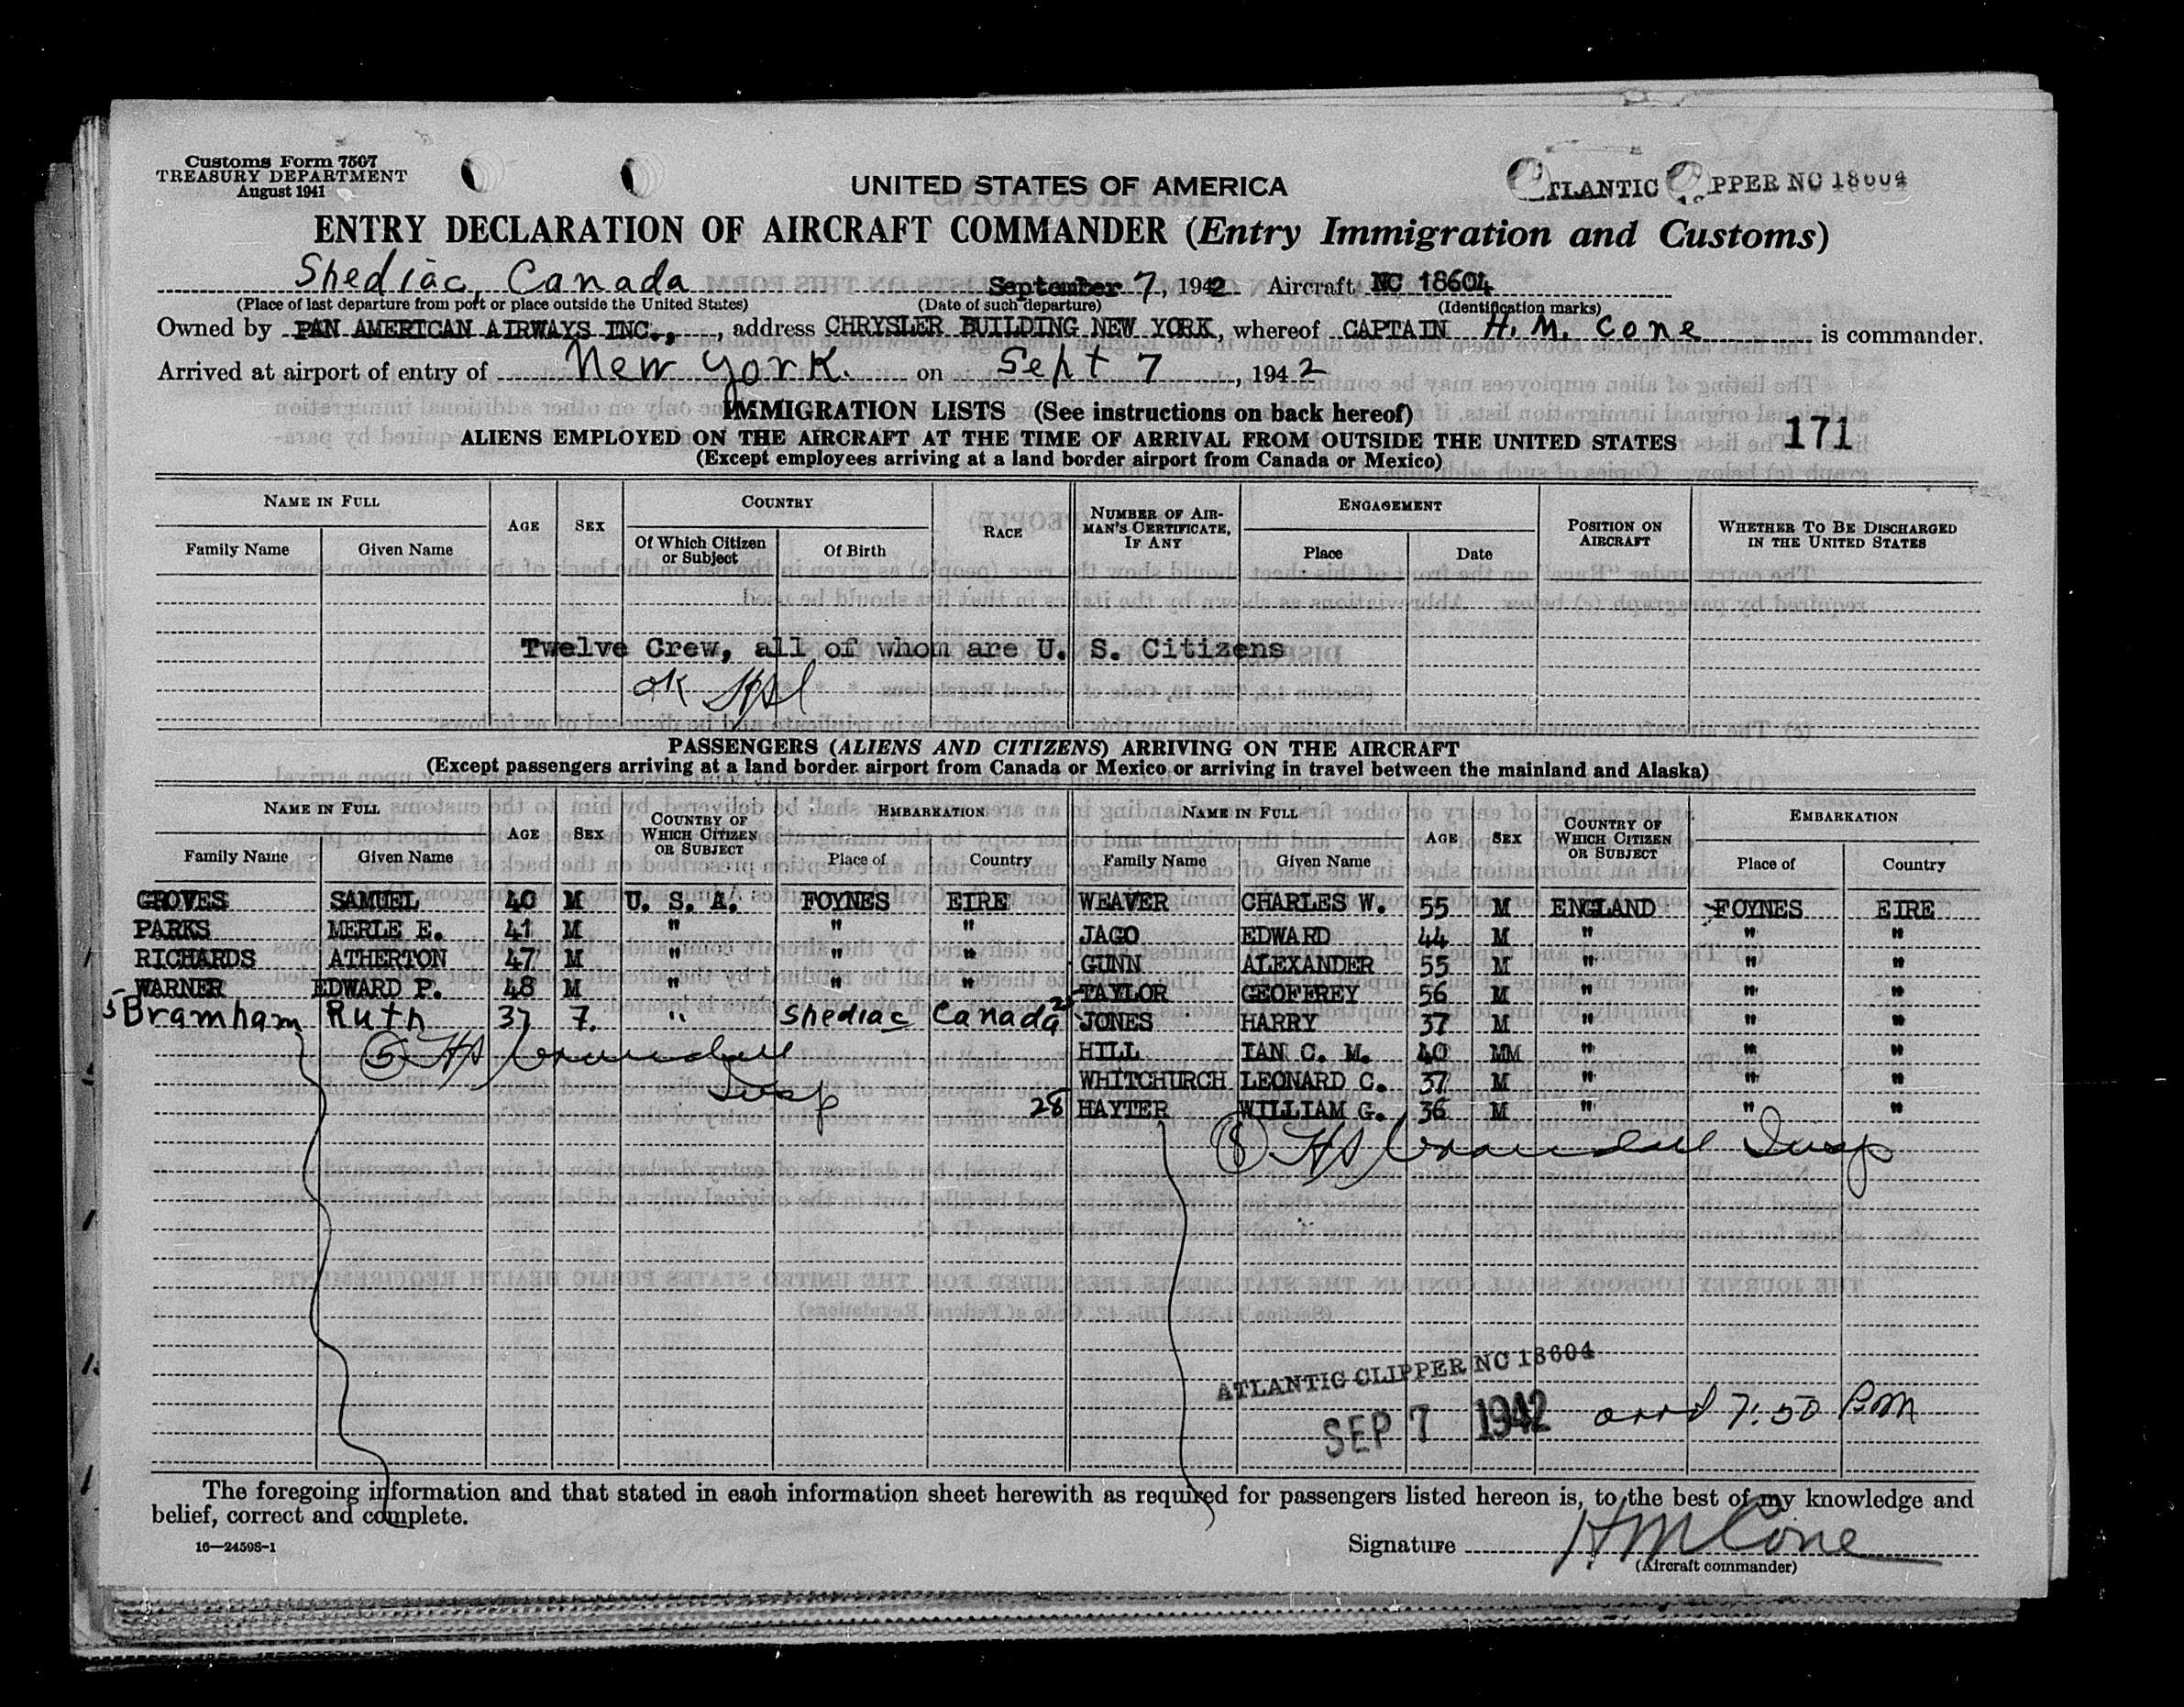 Customs Form 7507
TREASURY DEPARTMENT
August 1941
UNITED STATES OF AMERICA
ATLANTIC CLIPPER NC 18604
ENTRY DECLARATION OF AIRCRAFT COMMANDER (Entry Immigration and Customs)
Shediac, Canada September 7, 1942 Aircraft NC 18604
(Place of last departure from port or place outside the United States) (Date of such departure) (Identification marks)
Owned by PAN AMERICAN AIRWAYS INC., address CHRYSLER BUILDING NEW YORK, whereof CAPTAIN H. M. Cone is commander.
Arrived at airport of entry of New York. on Sept 7, 1942
IMMIGRATION LISTS (See instructions on back hereof)
ALIENS EMPLOYED ON THE AIRCRAFT AT THE TIME OF ARRIVAL FROM OUTSIDE THE UNITED STATES 171
(Except employees arriving at a land border airport from Canada or Mexico)
NAME IN FULL AGE SEX COUNTRY RACE NUMBER OF AIRMAN'S CERTIFICATE, IF ANY ENGAGEMENT POSITION ON AIRCRAFT WHETHER TO BE DISCHARGED IN THE UNITED STATES
Family Name Given Name Of Which Citizen or Subject Of Birth Place Date
Twelve Crew, all of whom are U. S. Citizens
OK
PASSENGERS (ALIENS AND CITIZENS) ARRIVING ON THE AIRCRAFT
(Except passengers arriving at a land border airport from Canada or Mexico or arriving in travel between the mainland and Alaska)
NAME IN FULL AGE SEX COUNTRY OF WHICH CITIZEN OR SUBJECT EMBARKATION NAME IN FULL AGE SEX COUNTRY OF WHICH CITIZEN OR SUBJECT EMBARKATION
Family Name Given Name Place of Country Family Name Given Name Place of Country
GROVES SAMUEL 40 M U. S. A. FOYNES EIRE WEAVER CHARLES W. 55 M ENGLAND FOYNES EIRE
PARKS MERLE E. 41 M " " " JAGO EDWARD 44 M " " "
RICHARDS ATHERTON 47 M " " " GUNN ALEXANDER 55 M " " "
WARNER EDWARD P. 48 M " " " TAYLOR GEOFFREY 56 M " " "
5 Bramham Ruth 37 F. " Shediac Canada JONES HARRY 37 M " " "
HILL IAN C. M. 40 MM " " "
WHITCHURCH LEONARD C. 37 M " " "
28 HAYTER WILLIAM G. 36 M " " "
5 Insp
8 Insp
ATLANTIC CLIPPER NC 18604
SEP 7 1942 arrd 7:50 P.M
The foregoing information and that stated in each information sheet herewith as required for passengers listed hereon is, to the best of my knowledge and
belief, correct and complete.
16—24598-1
Signature H M Cone
(Aircraft commander)